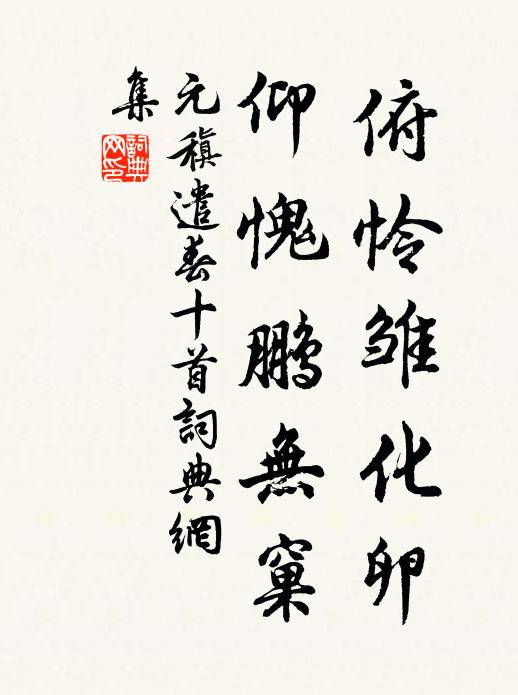 俯怜雏化卵
仰愧鹏無窠
元稹遣春十首詞典網
集
詞典网印